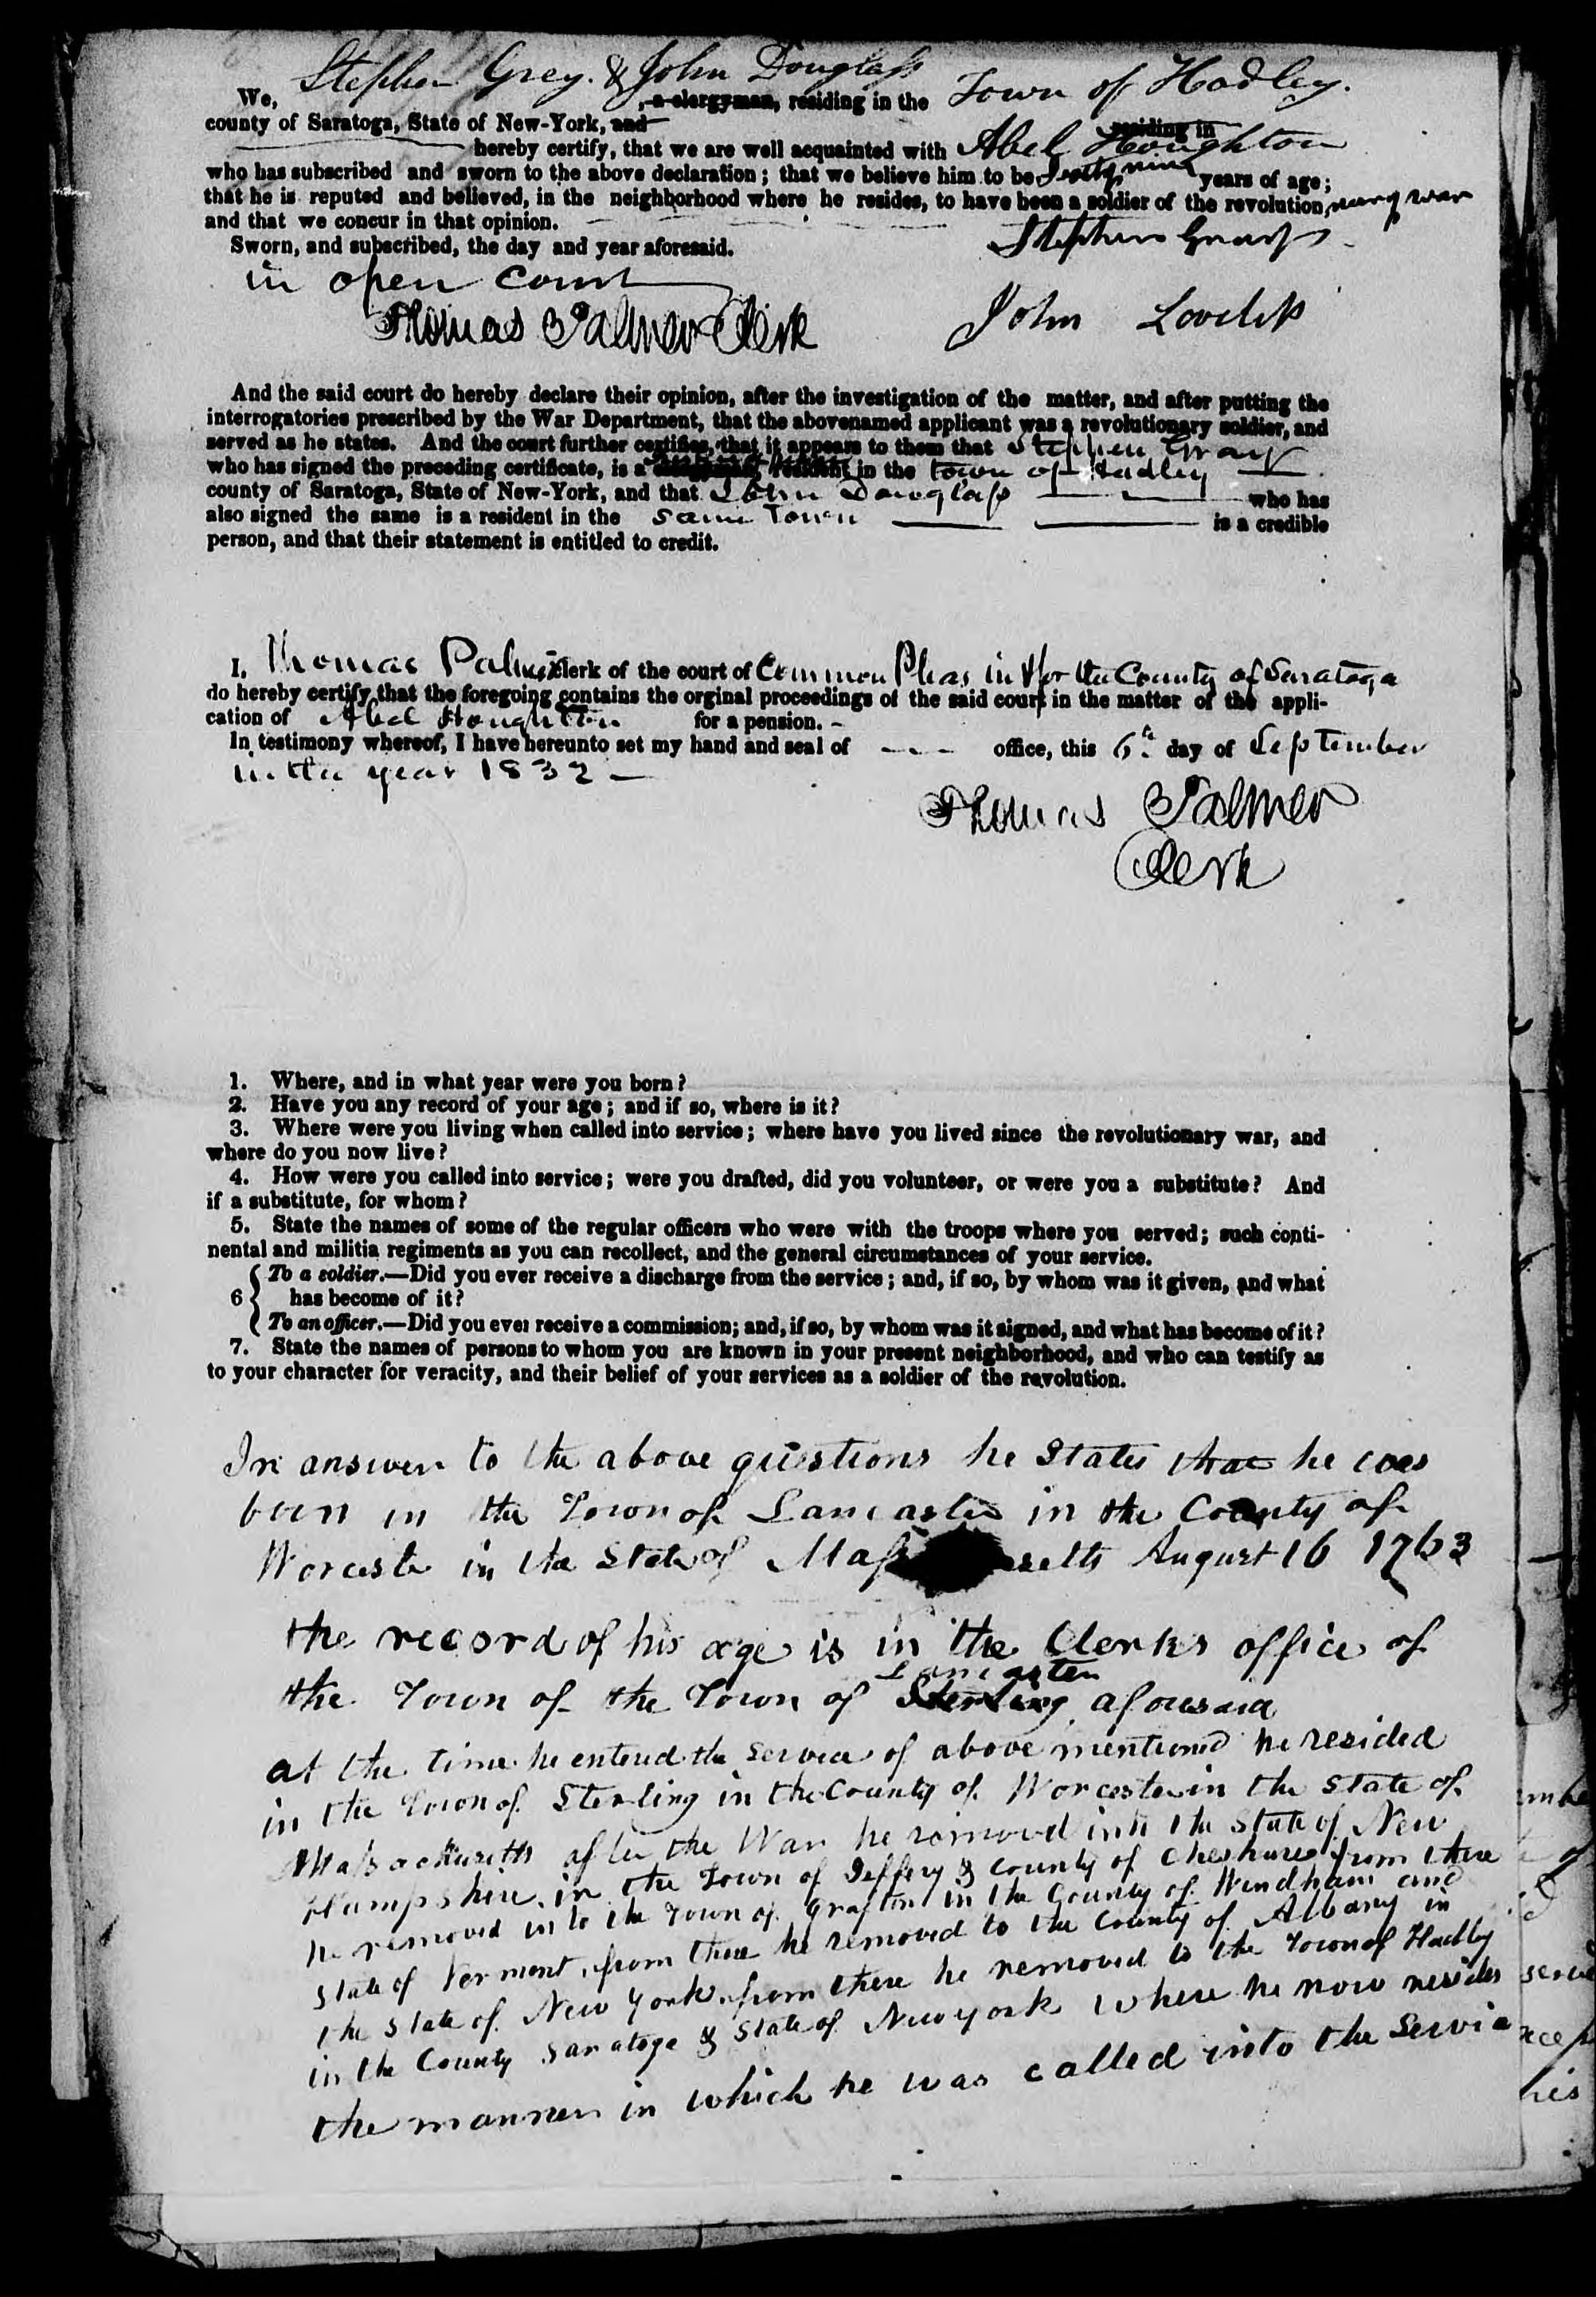 Stephen Grey. & John Douglass
We, , a clergyman, residing in the Town of Hadley.
county of Saratoga, State of New-York, and residing in
hereby certify, that we are well acquainted with Abel Houghton
who has subscribed and sworn to the above declaration; that we believe him to be Sixty nine years of age;
that he is reputed and believed, in the neighborhood where he resides, to have been a soldier of the revolutionary war
and that we concur in that opinion.
Sworn, and subscribed, the day and year aforesaid. Stephen Gray
in open Court
Thomas Palmer Clerk John
And the said court do hereby declare their opinion, after the investigation of the matter, and after putting the
interrogatories prescribed by the War Department, that the abovenamed applicant was a revolutionary soldier, and
served as he states. And the court further certifies, that it appears to them that Stephen Gray
who has signed the preceding certificate, is a resident in the town of Hadley
county of Saratoga, State of New-York, and that John Douglass who has
also signed the same is a resident in the same Town is a credible
person, and that their statement is entitled to credit.
I, Thomas Palmer Clerk of the court of Common Pleas in & for the County of Saratoga
do hereby certify that the foregoing contains the orginal proceedings of the said court in the matter of the appli-
cation of Abel Houghton for a pension.
In testimony whereof, I have hereunto set my hand and seal of office, this 6th day of September
in the year 1832
Thomas Palmer
Clerk
1. Where, and in what year were you born?
2. Have you any record of your age; and if so, where is it?
3. Where were you living when called into service; where have you lived since the revolutionary war, and
where do you now live?
4. How were you called into service; were you drafted, did you volunteer, or were you a substitute? And
if a substitute, for whom?
5. State the names of some of the regular officers who were with the troops where you served; such conti-
nental and militia regiments as you can recollect, and the general circumstances of your service.
To a soldier.—Did you ever receive a discharge from the service; and, if so, by whom was it given, and what
6 has become of it?
To an officer.—Did you ever receive a commission; and, if so, by whom was it signed, and what has become of it?
7. State the names of persons to whom you are known in your present neighborhood, and who can testify as
to your character for veracity, and their belief of your services as a soldier of the revolution.
In answer to the above questions he States that he was
born in the Town of Lancaster in the County of
Worcester in the State of Mass setts August 16 1763
the record of his age is in the Clerks office of
Lancaster
the Town of the Town of Sterling aforesaid
at the time he entered the Service of above mentioned he resided
in the Town of Sterling in the County of Worcester in the State of
Massachusetts after the War he removed into the State of New
Hampshire in the Town of Jeffery & County of Cheshure from there
he removed in to the Town of Grafton in the County of Windham and
State of Vermont, from there he removed to the County of Albany in
the State of New York from there he removed to the Town of Hadley
in the County Saratoga & State of New york where he now resides
the manner in which he was called into the Service